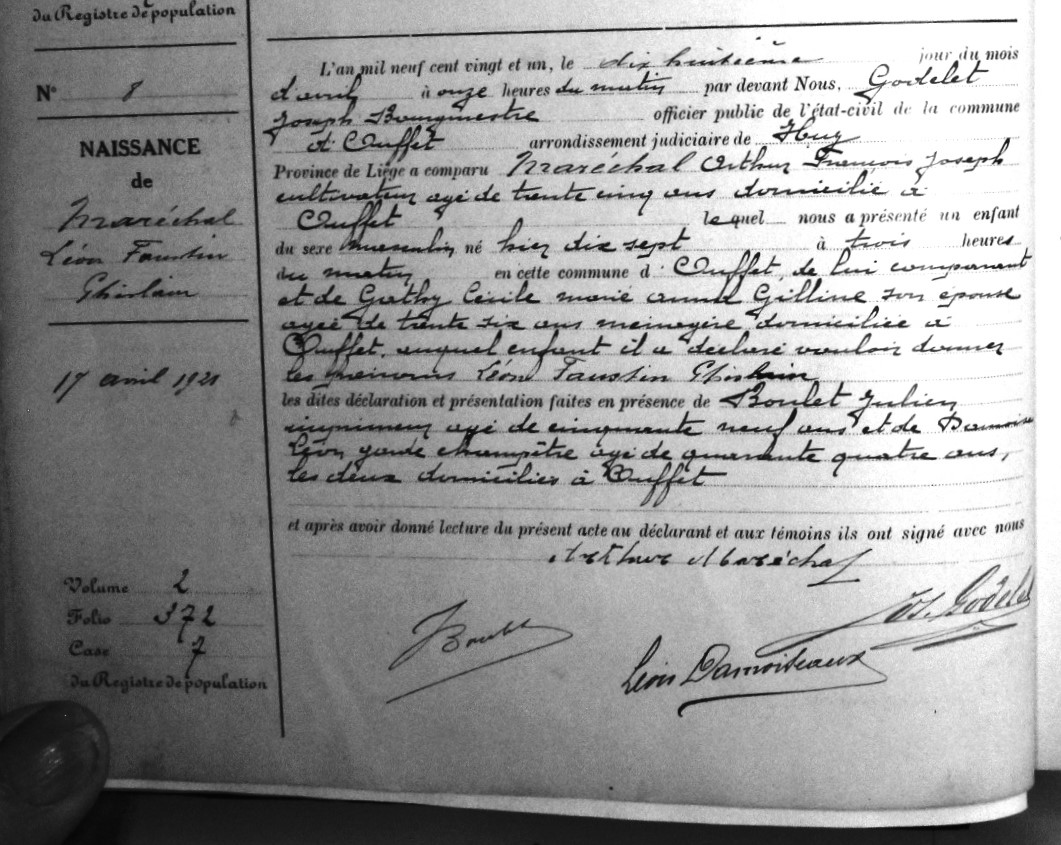 du Registre de population
N° 8
NAISSANCE
de
Maréchal
Léon Faustin
Ghislain
17 avril 1921
Volume 2
Folio 372
Case 7
du Registre de population
L'an mil neuf cent vingt et un, le dix huitième jour du mois
d'avril à onze heures du matin par devant Nous, Godelet
Joseph Bourgmestre officier public de l'état-civil de la commune
d'Ouffet arrondissement judiciaire de Huy
Province de Liège a comparu Maréchal Arthur François Joseph
cultivateur agé de trente cinq ans domicilié à
Ouffet lequel nous a présenté un enfant
du sexe masculin né hier dix sept à trois heures
du matin en cette commune d'Ouffet, de lui comparant
et de Gathy Cécile marie Gilline son épouse
agée de trente six ans ménagère domiciliée à
Ouffet, auquel enfant il a déclaré vouloir donner
les prénoms Léon Faustin Ghislain
les dites déclaration et présentation faites en présence de Boulet Julien
imprimeur agé de cinquante neuf ans et de
Léon garde champêtre agé de quarante quatre ans,
les deux domiciliés à Ouffet
et après avoir donné lecture du présent acte au déclarant et aux témoins ils ont signé avec nous
Arthur Maréchal
Jos. Godelet
J Boulet
Léon Damoiseaux